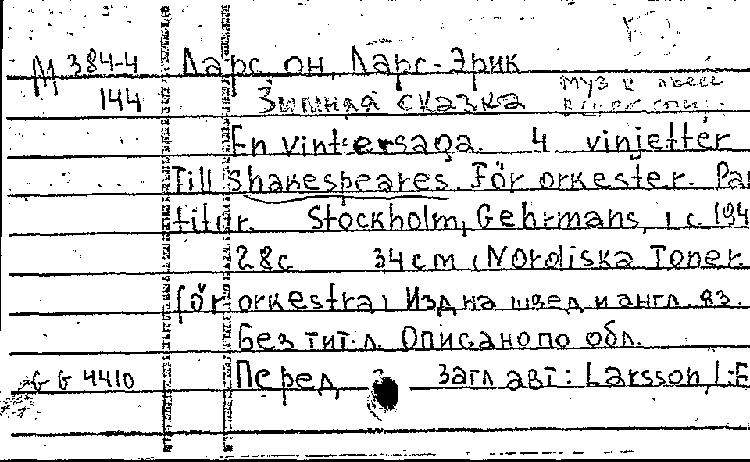 М 384-4 Ларссон, Ларс-Эрик
144 Зимняя сказка муз к пьесе
En vintersaga. 4 vinjetter
Till Shakespeares. För orkester. Par
titur. Stockholm, Gehrmans, 1 с 194
28с 34cm (Nordiska Toner
för orkestra) Изд на швед и англ яз.
без тит.л. Описано по обл.
G G 4410 Перед загл авт: Larsson, L-E